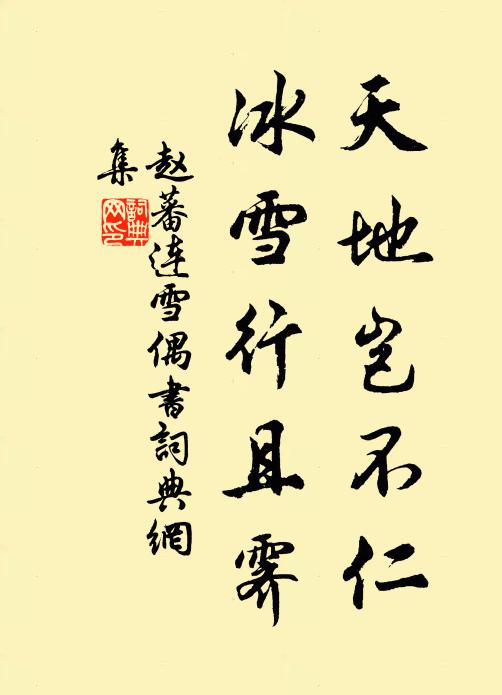 天地岂不仁
冰雪行且霁
赵蕃连雪偶书詞典網
集
詞典网印